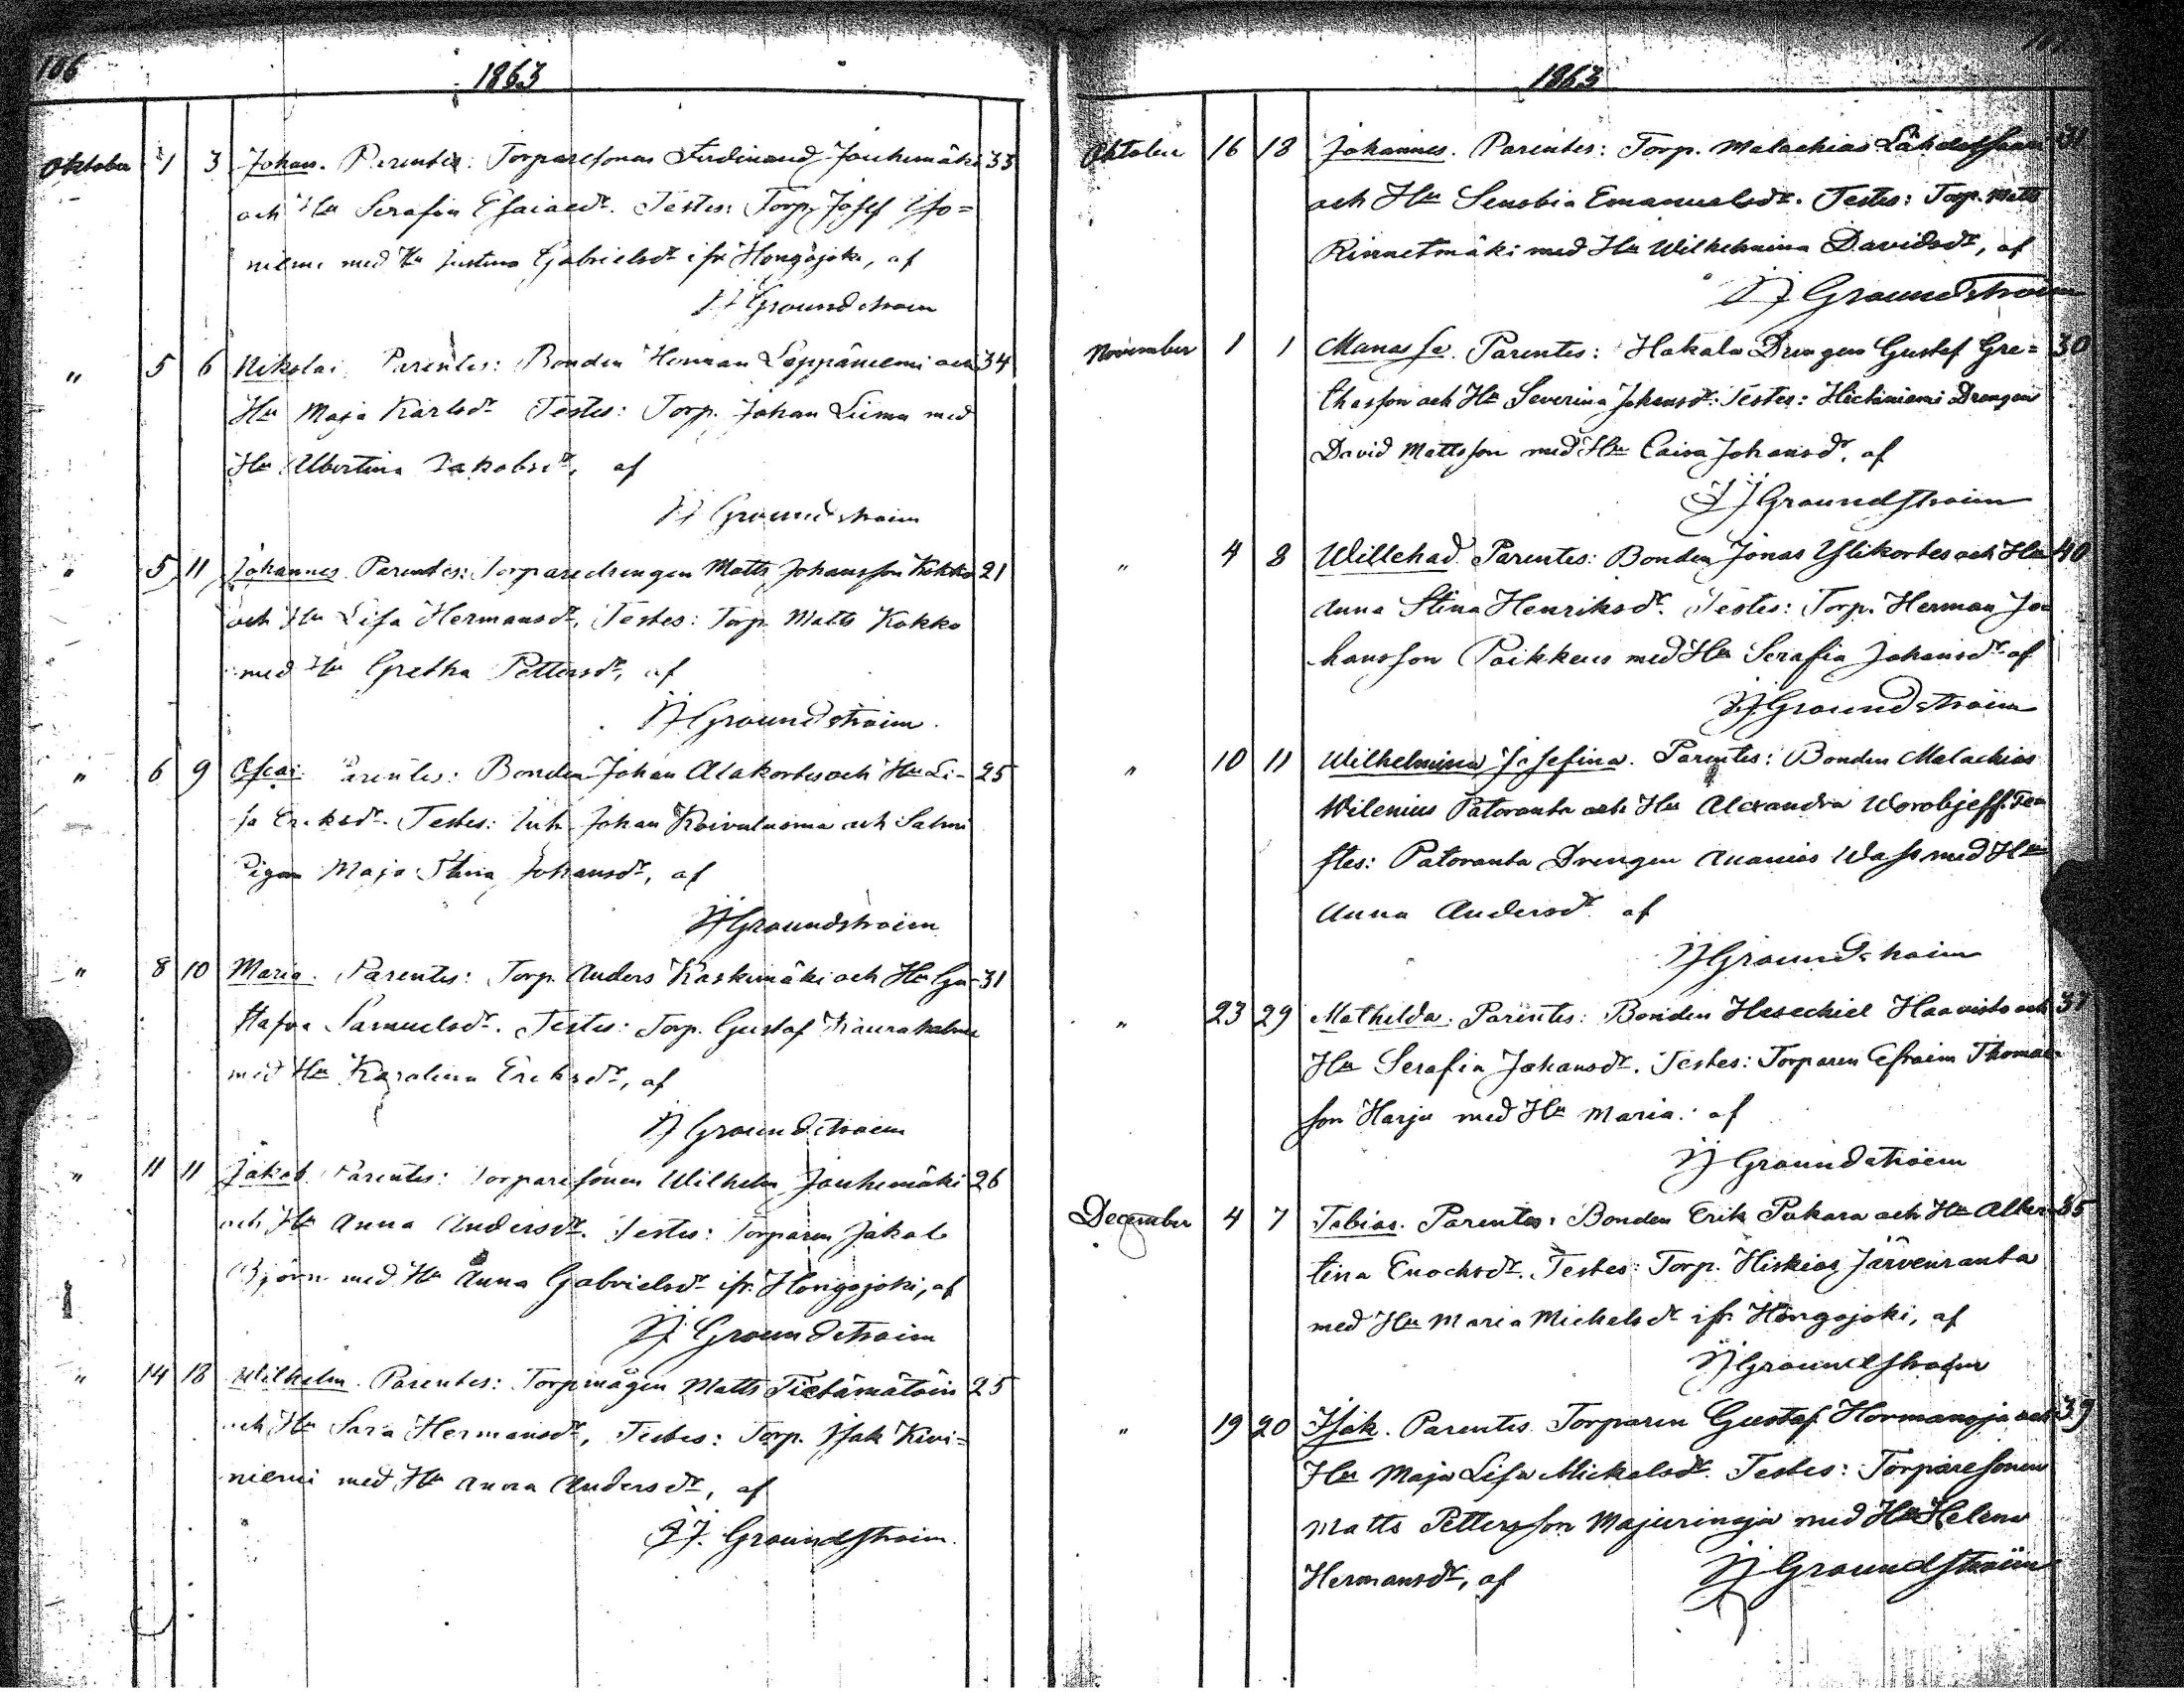 106
1863
Oktober 1 3 Johan. Parentes: Torparesonen Ferdinand Jouhimäki 33
och Hu Serafia Esaiaedr. Testes: Torp. Josef Iso=
niemi med Hu Justina Gabrielsdr ifr. Hongojoki, af
JJ Groundstroem
" 5 6 Nikolai. Parentes: Bonden Herman Leppäniemi och 34
Hu Maja Karlsdr Testes: Torp. Johan Liima med
Hu Albertina Jakobsdr, af
JJ Groundstroem
" 5 11 Johannes. Parentes: Torparedrengen Matts Johansson Kokko 21
och Hu Lisa Hermansdr, Testes: Torp. Matts Kokko
med Hu Gretha Pettersdr, af
JJ Groundstroem.
" 6 9 Parentes: Bonden Johan Alakortes och Hu Li- 25
sa Eriksdr. Testes: Johan Koivuluoma och Salmi
Pigan Maja Stina Johansdr, af
JJ Groundstroem
" 8 10 Maria. Parentes: Torp. Anders Kaskimäki och Hu Gu- 31
stafva Samuelsdr. Testes: Torp. Gustaf
med Hu Karolina Eriksdr, af
JJ Groundstroem
" 11 11 Jakob. Parentes: Torparesonen Wilhelm Jouhimäki 26
och Hu Anna Andersdr. Testes: Torparen Jakob
Björn med Hu Anna Gabrielsdr ifr. Hongojoki, af
JJ Groundstroem
" 14 18 Wilhelm. Parentes: Torpmågen Matts Tietämätöin 25
och Hu Sara Hermansdr, Testes: Torp. Isak Kivi=
niemi med Hu Anna Andersdr, af
JJ. Groundstroem.
1863
Oktober 16 18 Johannes. Parentes: Torp. Malachias 31
och Hu Senobia Emanuelsdr. Testes: Torp. Matts
Rinnetmäki med Hu Wilhelmina Davidsdr, af
JJ Groundstroem
November 1 1 Manasse. Parentes: Hakala Drengen Gustaf Gre= 30
thasson och Hu Severina Johansdr. Testes: Hietaniemi Drengen
David Mattsson med Hu Caisa Johansdr, af
JJ Groundstroem
" 4 8 Willehad. Parentes: Bonden Jonas Ylikortes och Hu 40
Anna Stina Henriksdr. Testes: Torp. Herman Jo
hansson Poikkeus med Hu Serafia Johansdr af
JJ Groundstroem
" 10 11 Wilhelmina Josefina. Parentes: Bonden Malachias
Wilenius Patoranta och Hu Alexandra Worobjeff. Te
stes: Patoranta Drengen Ananias Wass med Hu
Anna Andersdr. af
JJ Groundstroem
" 23 29 Mathilda. Parentes: Bonden Hesechiel Haavisto och 37
Hu Serafia Johansdr. Testes: Torparen Efraim Thomas
son Harju med Hu Maria. af
JJ Groundstroem
December 4 7 Tobias. Parentes: Bonden Erik Pukara och Hu Alber 35
tina Enochsdr. Testes: Torp. Hiskias Järvenranta
med Hu Maria Michelsdr ifr. Hongojoki, af
JJ Groundstroem
" 19 20 Isak. Parentes. Torparen Gustaf Hormanoja och 39
Hu Maja Lisa Mickelsdr. Testes: Torparesonen
Matts Pettersson Majurinoja med Hu Helena
Hermansdr, af JJ Groundstroem